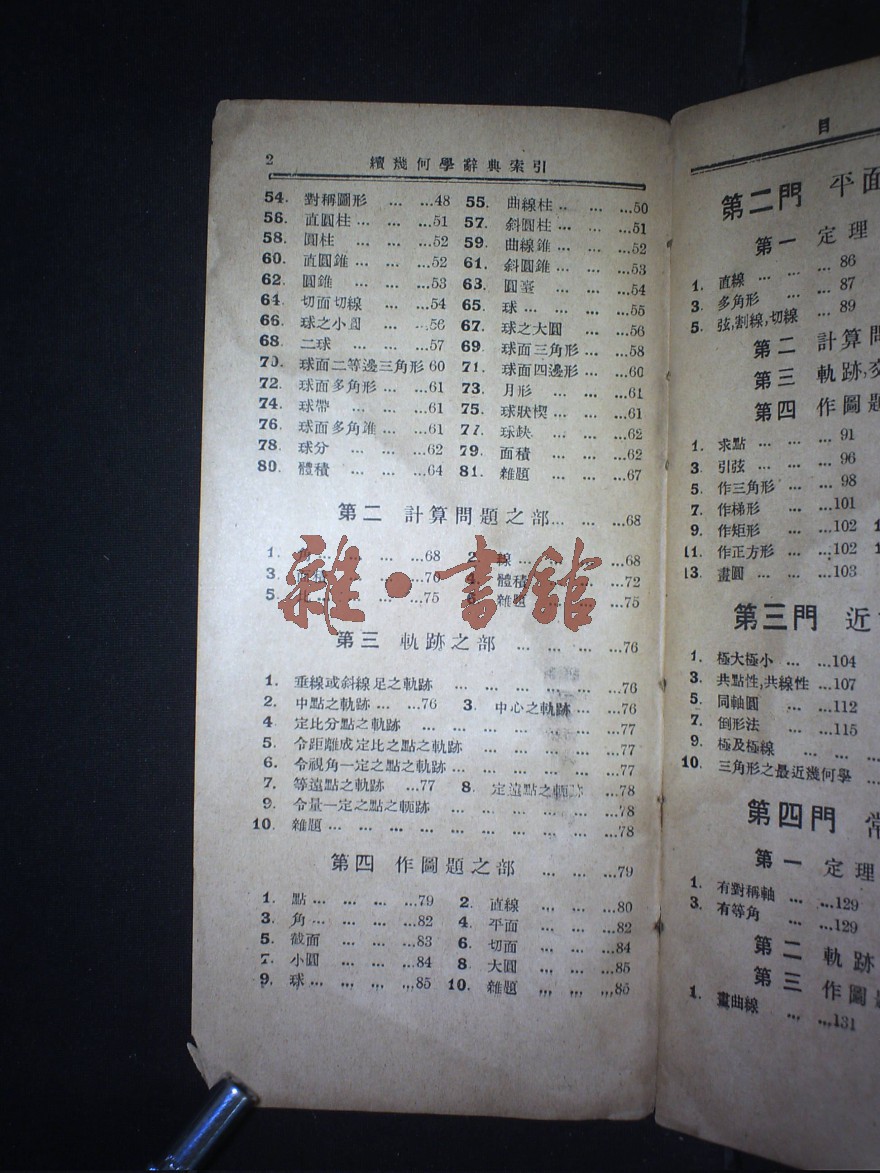 2 續幾何學辭典索引
54. 對稱圖形 … …48 55. 曲線柱 … … …50
56. 直圓柱 … … …51 57. 斜圓柱 … … …51
58. 圓柱 … … …52 59. 曲線錐 … … …52
60. 直圓錐 … … …52 61. 斜圓錐 … … …53
62. 圓錐 … … …53 63. 圓臺 … … …54
64. 切面切線 … …54 65. 球 … … … …55
66. 球之小圓 … …56 67. 球之大圓 … …56
68. 二球 … … …57 69. 球面三角形 … …58
70. 球面二等邊三角形 60 71. 球面四邊形 … …60
72. 球面多角形 … …61 73. 月形 … … …61
74. 球帶 … … …61 75. 球狀楔 … … …61
76. 球面多角錐 … …61 77. 球缺 … … …62
78. 球分 … … …62 79. 面積 … … …62
80. 體積 … … …64 81. 雜題 … … …67
第二 計算問題之部 … … …68
1. 角 … … … …68 2. 線 … … … …68
3. … …70 4. 體積 … … …72
5. 比 … … … …75 6. 雜題 … … …75
雜·書館
第三 軌跡之部 … … …76
1. 垂線或斜線足之軌跡 … … … … …76
2. 中點之軌跡 … …76 3. 中心之軌跡 … …76
4. 定比分點之軌跡 … … … … … …77
5. 令距離成定比之點之軌跡 … … … …77
6. 令視角一定之點之軌跡 … … … … …77
7. 等遠點之軌跡 …77 8. 定遠點之軌跡 …78
9. 令量一定之點之軌跡 … … … … …78
10. 雜題 … … … … … … … … …78
第四 作圖題之部 … … …79
1. 點 … … … …79 2. 直線 … … …80
3. 角 … … … …82 4. 平面 … … …82
5. 截面 … … …83 6. 切面 … … …84
7. 小圓 … … …84 8. 大圓 … … …85
9. 球 … … … …85 10. 雜題 … … …85
目
第二門 平面
第一 定理
1. 直線 … … … 86
3. 多角形 … … 87
5. 弦,割線,切線 … 89
第二 計算問
第三 軌跡,交
第四 作圖題
1. 求點 … … … 91
3. 引弦 … … … 96
5. 作三角形 … … 98
7. 作梯形 … …101
9. 作矩形 … …102 1
11. 作正方形 … …102 1
13. 畫圓 … … …103
第三門 近
1. 極大極小 … …104
3. 共點性,共線性 …107
5. 同軸圓 … …112
7. 倒形法 … …115
9. 極及極線 … …
10. 三角形之最近幾何學 …
第四門 常
第一 定理
1. 有對稱軸 … …129
3. 有等角 … …129
第二 軌跡
第三 作圖題
1. 畫曲線 … …131